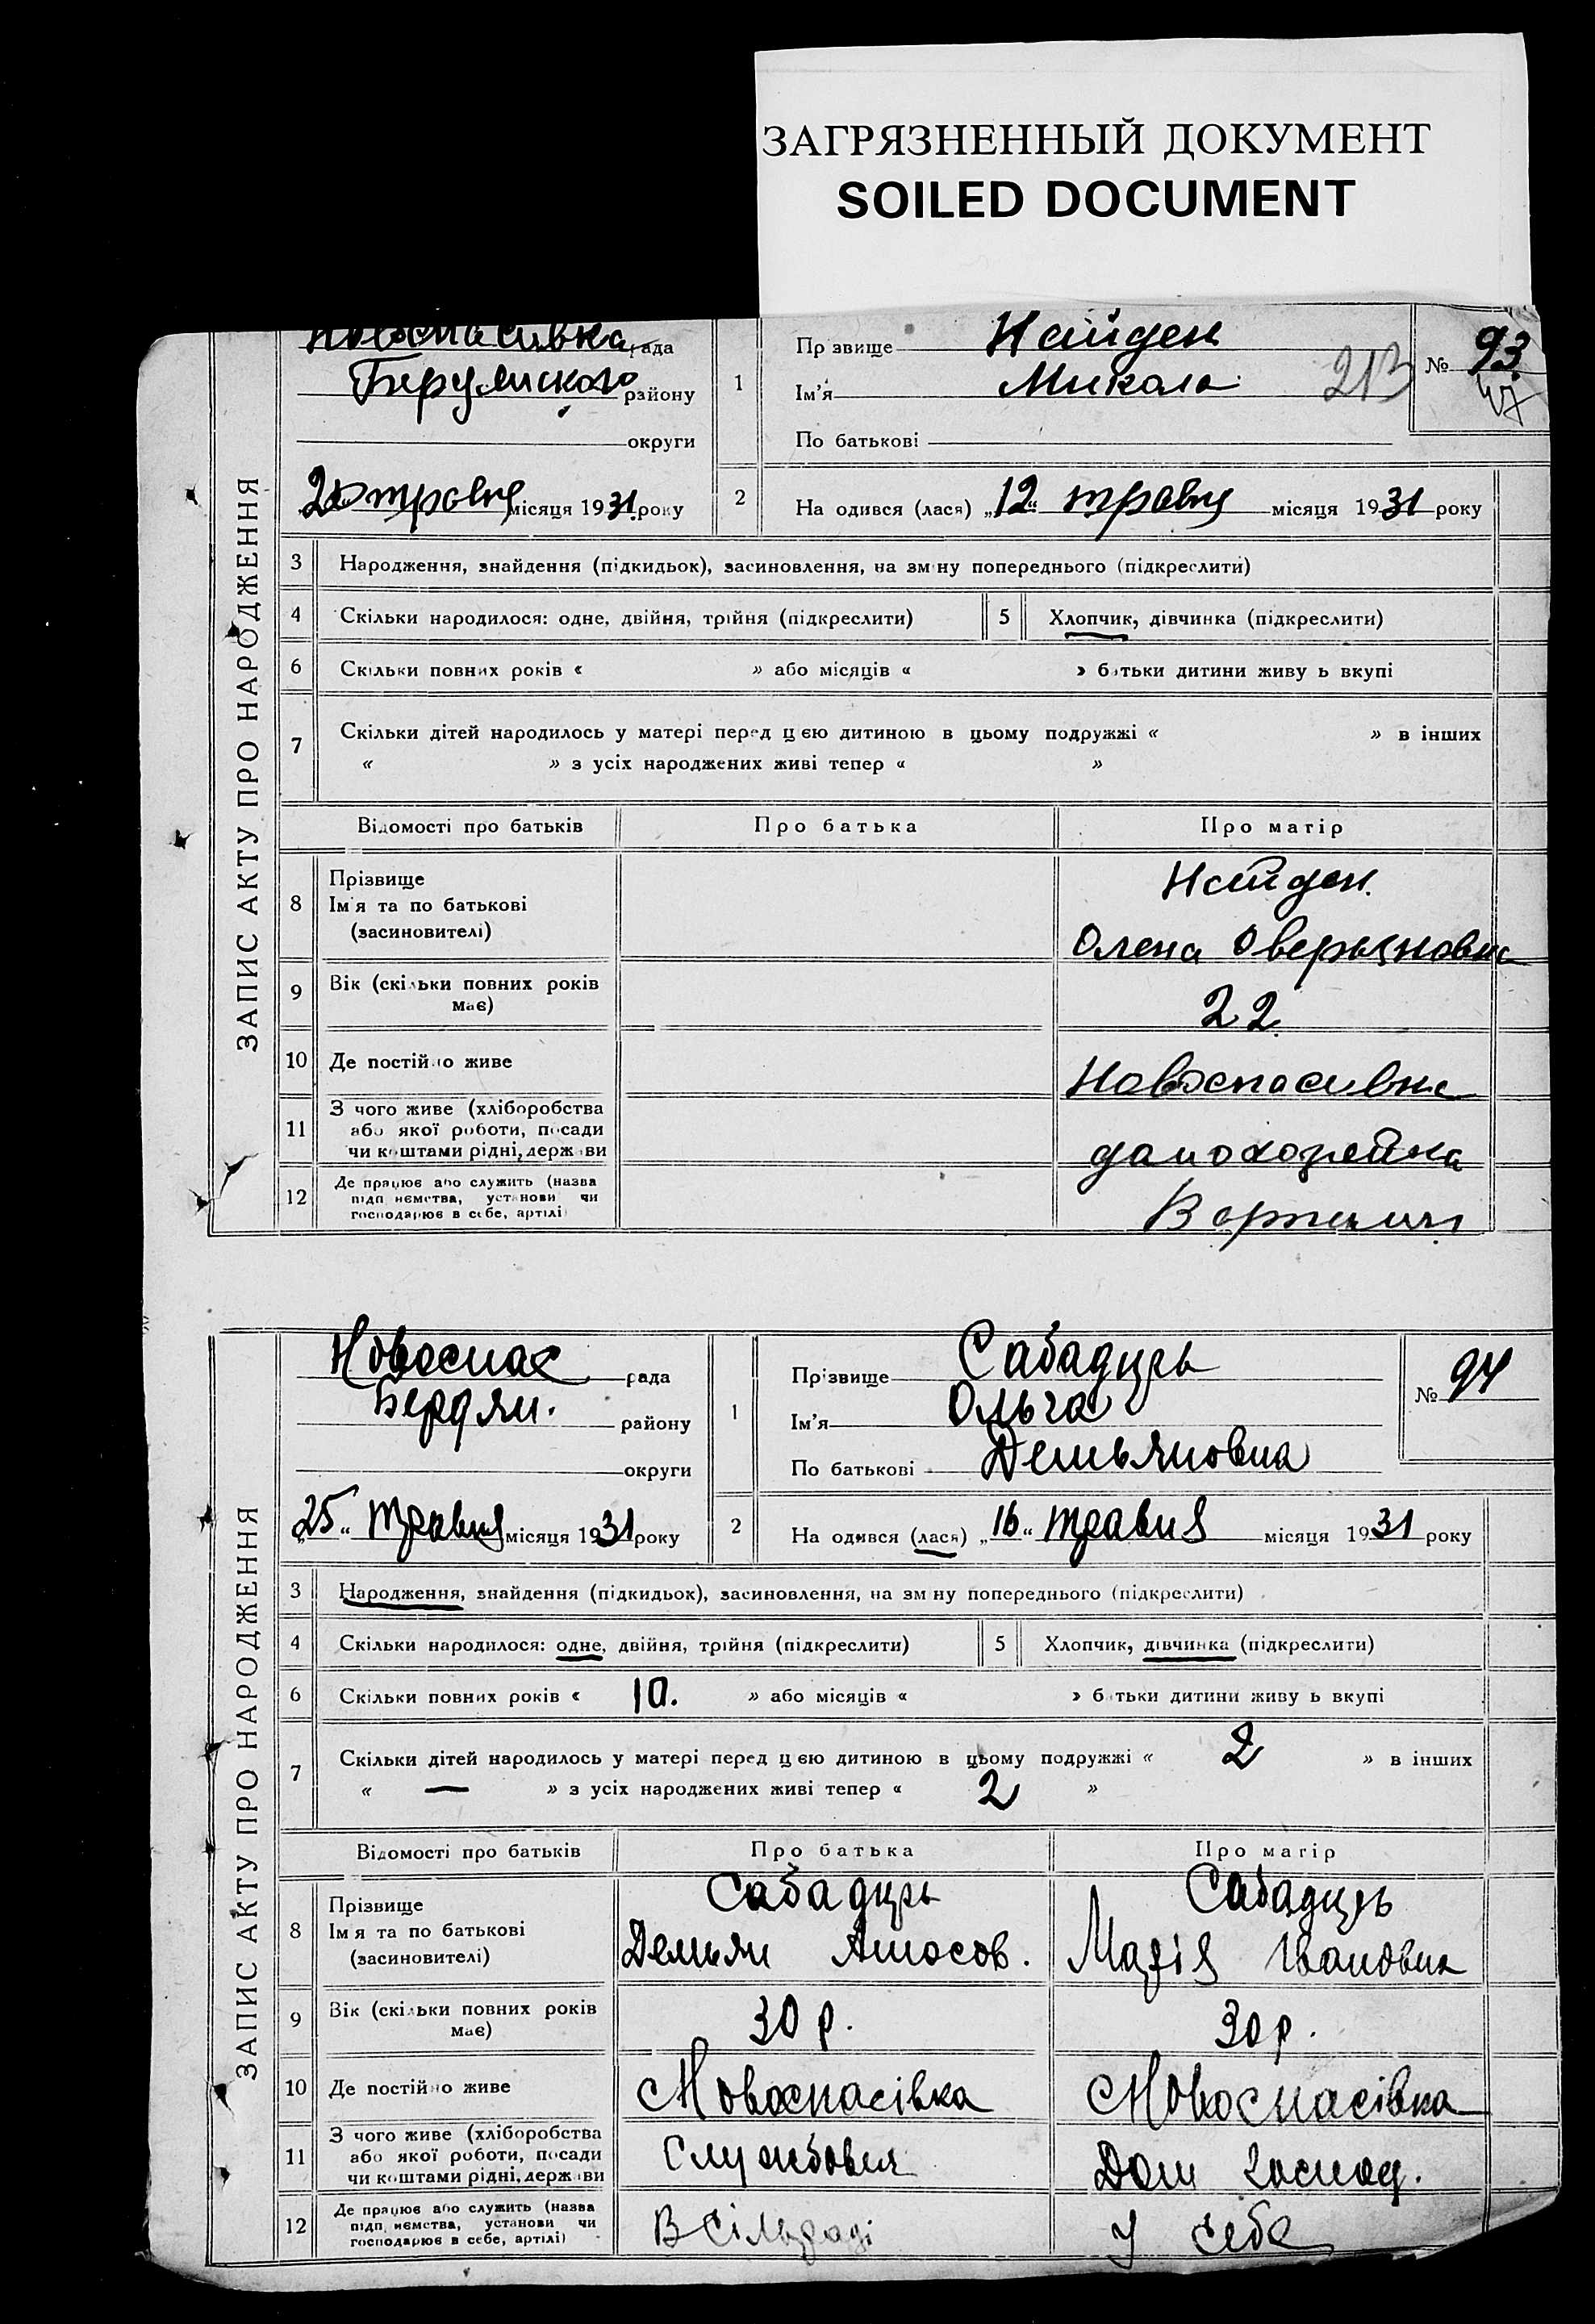 ЗАГРЯЗНЕННЫЙ ДОКУМЕНТ
SOILED DOCUMENT
ЗАПИС АКТУ ПРО НАРОДЖЕННЯ
Новоспасивка рада
району
округи
20 травня місяця 1931 року
1
Прізвище Найден
Ім'я Микола
По батькові
213
№ 93
47
2
На одився (лася) „12" травня місяця 1931 року
3 Народження, знайдення (підкидьок), засиновлення, на зм ну попереднього (підкреслити)
4 Скільки народилося: одне, двійня, трійня (підкреслити) 5 Хлопчик, дівчинка (підкреслити)
6 Скільки повних років « » або місяців « » батьки дитини живу ь вкупі
7 Скільки дітей народилось у матері перед цією дитиною в цьому подружжі « » в інших
« » з усіх народжених живі тепер « »
Відомості про батьків Про батька Про матір
8 Прізвище
Ім'я та по батькові
(засиновителі)
Найден.
Олена
9 Вік (скільки повних років
має)
22
10 Де постійно живе
Новоспасивка
11 З чого живе (хліборобства
або якої роботи, посади
чи коштами рідні, держави
домохозяйка
12 Де працює або служить (назва
підп иємства, установи чи
господарює в себе, артілі)
В артили
ЗАПИС АКТУ ПРО НАРОДЖЕННЯ
Новоспас рада
Бердян. району
округи
„25" травня місяця 1931 року
1
Прізвище Сабадирь
Ім'я Ольга
По батькові Демьяновна
№ 94
2
На одився (лася) „16" травня місяця 1931 року
3 Народження, знайдення (підкидьок), засиновлення, на зм ну попереднього (підкреслити)
4 Скільки народилося: одне, двійня, трійня (підкреслити) 5 Хлопчик, дівчинка (підкреслити)
6 Скільки повних років « 10. » або місяців « » батьки дитини живу ь вкупі
7 Скільки дітей народилось у матері перед цією дитиною в цьому подружжі « 2 » в інших
« — » з усіх народжених живі тепер « 2 »
Відомості про батьків Про батька Про матір
8 Прізвище
Ім'я та по батькові
(засиновителі)
Сабадирь
Демьян Амосов.
Сабадирь
Марія Івановна
9 Вік (скільки повних років
має)
30 р. 30 р.
10 Де постійно живе
Новоспасівка Новоспасівка
11 З чого живе (хліборобства
або якої роботи, посади
чи коштами рідні, держави
Службовця Дом господ.
12 Де працює або служить (назва
підп иємства, установи чи
господарює в себе, артілі)
В сільраді У себе